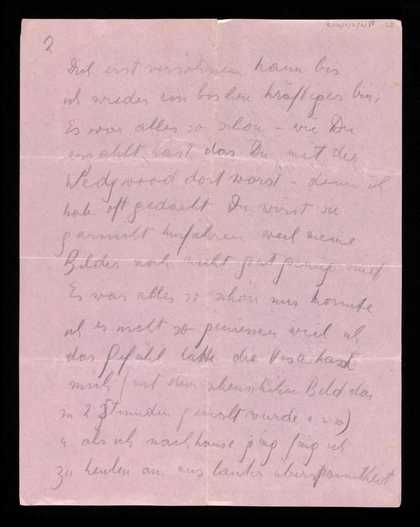 2
Dich erst verwöhnen kann bis
ich wieder ein bischen kräftiger bin.
Es war alles so schön – wie Du
erzählt hast das Du mit der
Wedgwood dort warst – denn ich
habe oft gedacht Du wirst sie
garnicht hinfahren weil meine
Bilder noch nicht gut genug sind
Es war alles so schön nur konnte
ich es nicht so geniessen weil ich
das Gefühl hatte die Visa hasst
mich (mit dem Bild das
in 2 Stunden gemalt wurde u.s.w)
u als ich nachhause ging fing ich
zu heulen an aus lauter überspanntheit